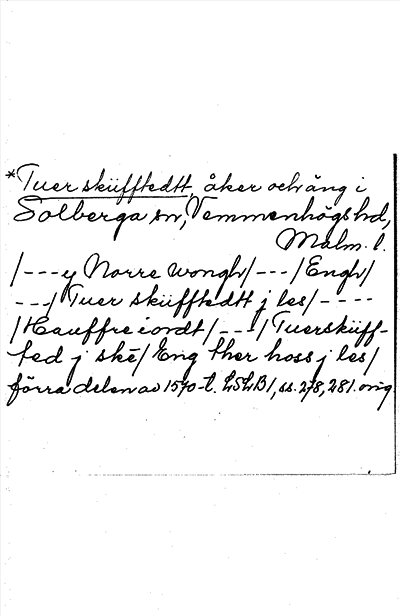 *Tuer sküfftedtt, åker och äng i
Solberga sn, Vemmenhögs hd,
Malm. l.
/---y Norre wongh/---/Engh/
---/Tuer sküfftedtt j les/----
/Hauffre iordt/---/Tuersküff-
ted j skē/Eng ther hoss j les/
förra delen av 1570-t. LSLB1, ss. 278, 281. orig